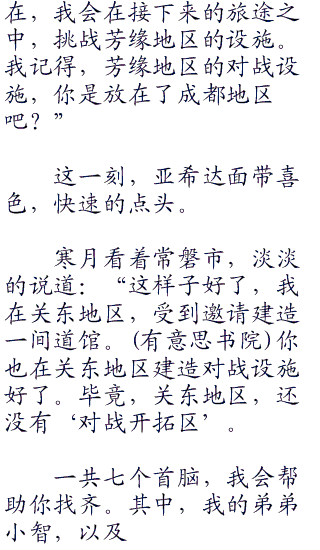 在，我会在接下来的旅途之
中，挑战芳缘地区的设施。
我记得，芳缘地区的对战设
施，你是放在了成都地区
吧？”
这一刻，亚希达面带喜
色，快速的点头。
寒月看着常磐市，淡淡
的说道：“这样子好了，我
在关东地区，受到邀请建造
一间道馆。(有意思书院)你
也在关东地区建造对战设施
好了。毕竟，关东地区，还
没有‘对战开拓区’。
一共七个首脑，我会帮
助你找齐。其中，我的弟弟
小智，以及